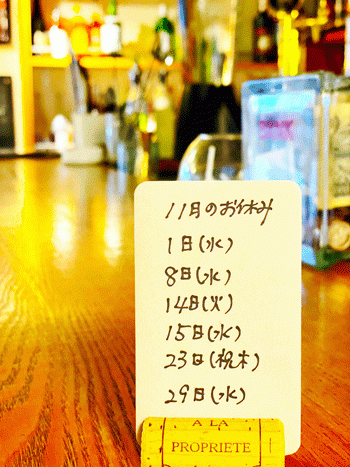 11月のお休み
1日(水)
8日(水)
14日(火)
15日(水)
23日(祝木)
29日(水)
A LA
PROPRIETE